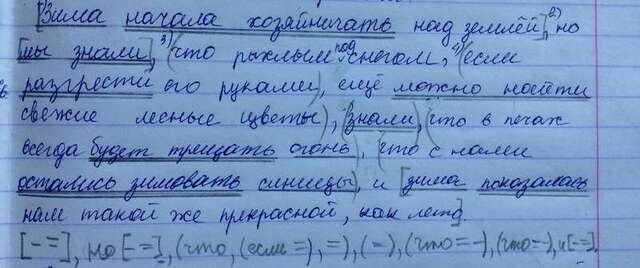 [Зима начала хозяйничать над землёй], 2) но
[мы знали], 3) (что рыхлым под снегом, 4) (если
разгрести его руками), ещё можно найти
свежие лесные цветы), [знали, (что в печах
всегда будет трещать огонь), (что с нами
остались зимовать синицы), и [зима показалась
нам такой же прекрасной, как лето].
[- =], но [- =], (что, (если =), =), (=), (что = -), (что = -), и [- =].